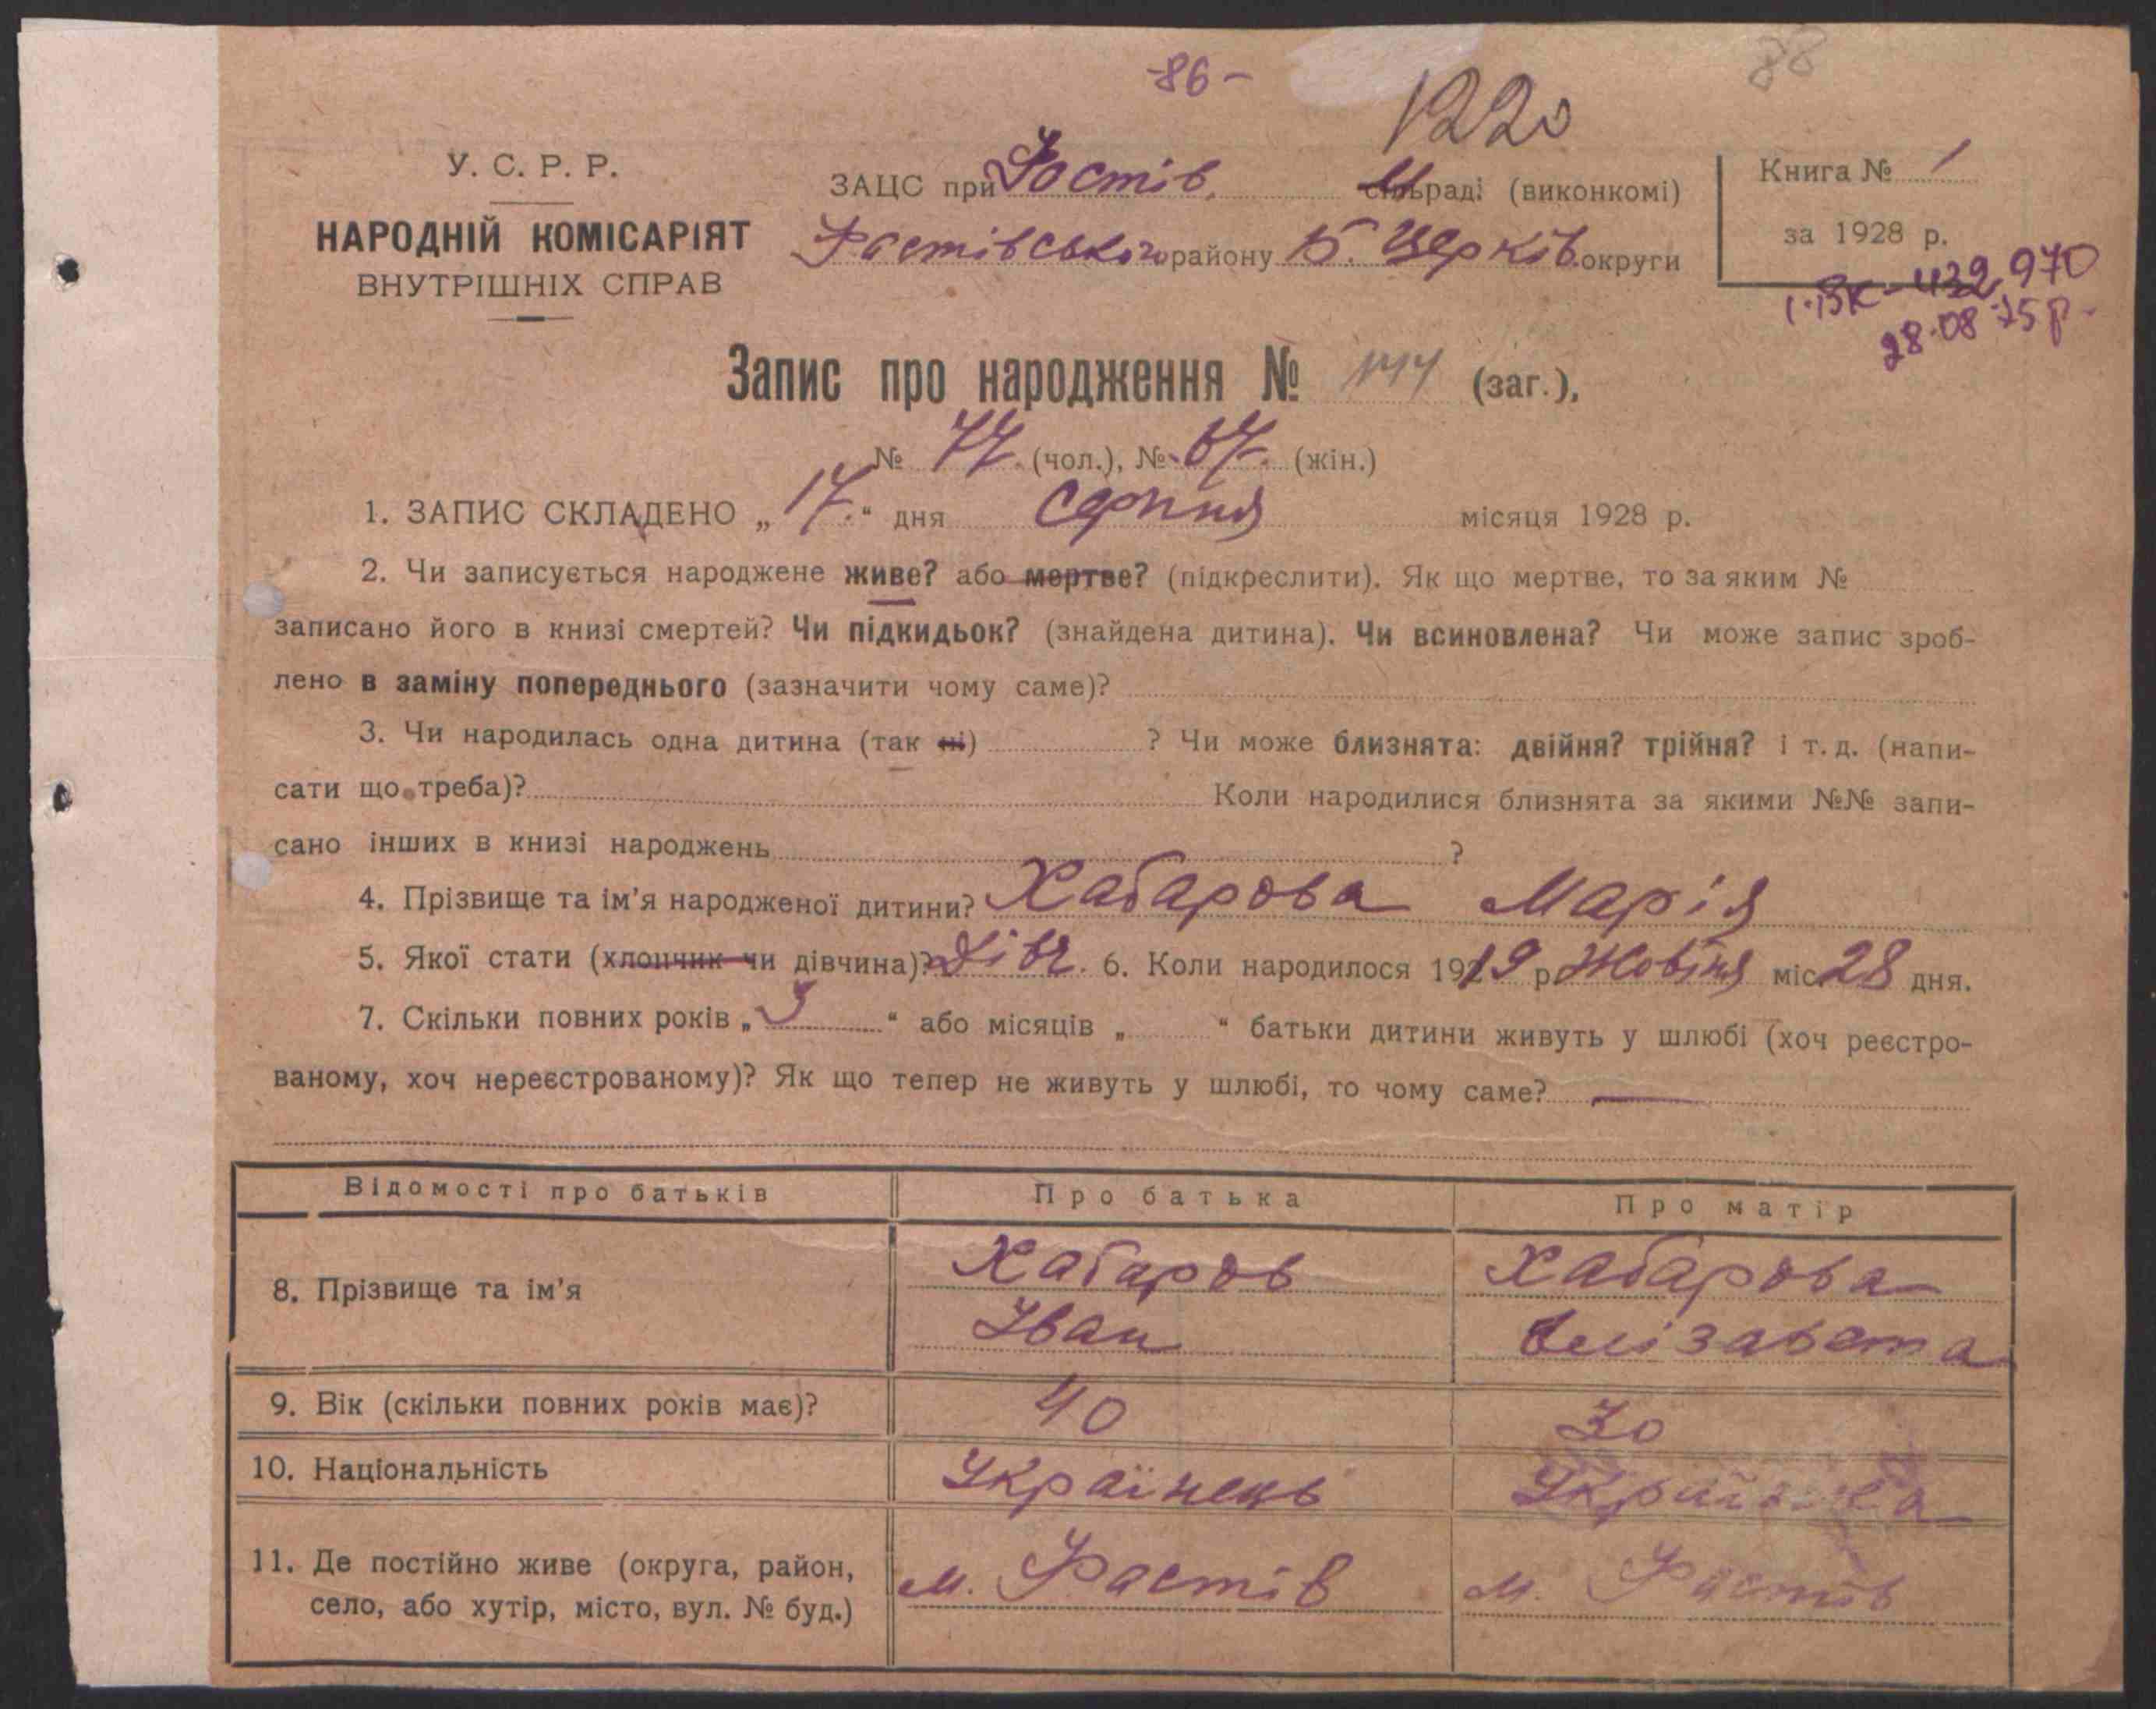 -86-
88
1220
У. С. Р. Р.
НАРОДНІЙ КОМІСАРІЯТ
ВНУТРІШНІХ СПРАВ
ЗАЦС при Фастів. сільраді (виконкомі)
Фастівського району Б. Церків. округи
Книга № 1
за 1928 р.
432 970
28.08 75 р.
Запис про народження № 144 (заг.),
№ 77. (чол.), № 67. (жін.)
1. ЗАПИС СКЛАДЕНО „17.“ дня серпня місяця 1928 р.
2. Чи записується народжене живе? або мертве? (підкреслити). Як що мертве, то за яким №
записано його в книзі смертей? Чи підкидьок? (знайдена дитина). Чи всиновлена? Чи може запис зроб-
лено в заміну попереднього (зазначити чому саме)?
3. Чи народилась одна дитина (так ні) ? Чи може близнята: двійня? трійня? і т. д. (напи-
сати що треба)? Коли народилися близнята за якими №№ запи-
сано інших в книзі народжень ?
4. Прізвище та ім’я народженої дитини? Хабарова Марія
5. Якої стати (хлопчик чи дівчина)? Дівч. 6. Коли народилося 1919 р. Жовтня міс. 28 дня.
7. Скільки повних років „ “ або місяців „ “ батьки дитини живуть у шлюбі (хоч реєстро-
ваному, хоч нереєстрованому)? Як що тепер не живуть у шлюбі, то чому саме? —
Відомості про батьків Про батька Про матір
8. Прізвище та ім’я Хабаров Хабарова
Іван Єлізавета
9. Вік (скільки повних років має)? 40 30
10. Національність Українець Українка
11. Де постійно живе (округа, район, м. Фастів м. Фастів
село, або хутір, місто, вул. № буд.)